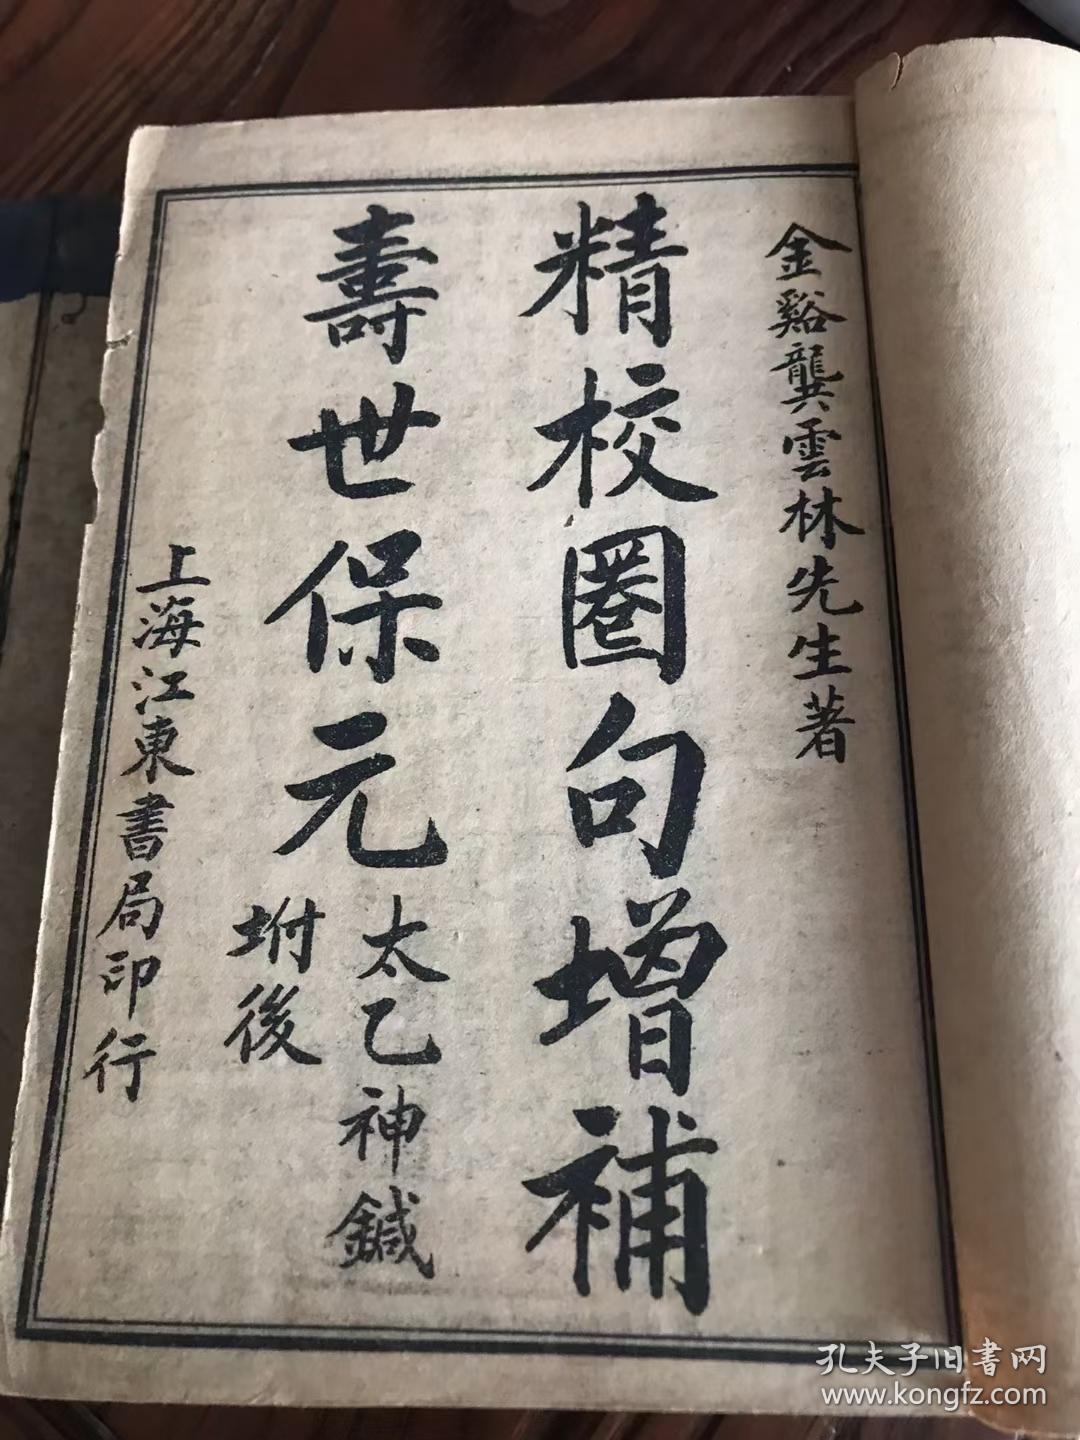 金谿龔雲林先生著
精校圈句增補
壽世保元
太乙神鍼
坿後
上海江東書局印行
孔夫子旧書网
www.kongfz.com